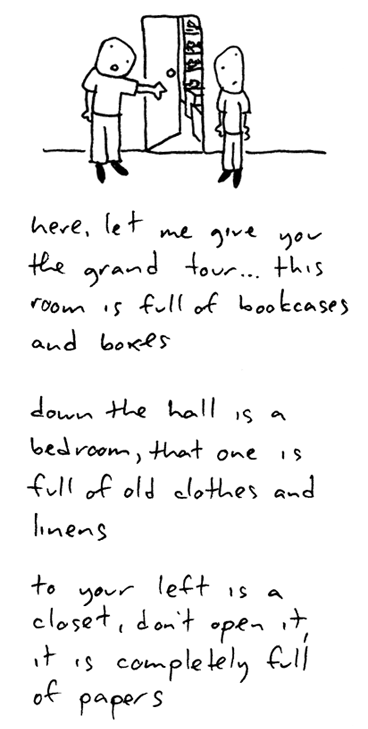 here, let me give you
the grand tour... this
room is full of bookcases
and boxes
down the hall is a
bedroom, that one is
full of old clothes and
linens
to your left is a
closet, don't open it,
it is completely full
of papers